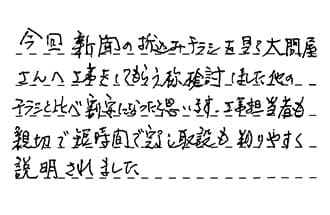 今回 新聞の折込みチラシを見て大問屋
さんへ工事をしてもらう称検討しました他の
チラシと比べ割安になったと思います.工事担当者も
親切で短時間で完了し取説も判りやすく
説明されました